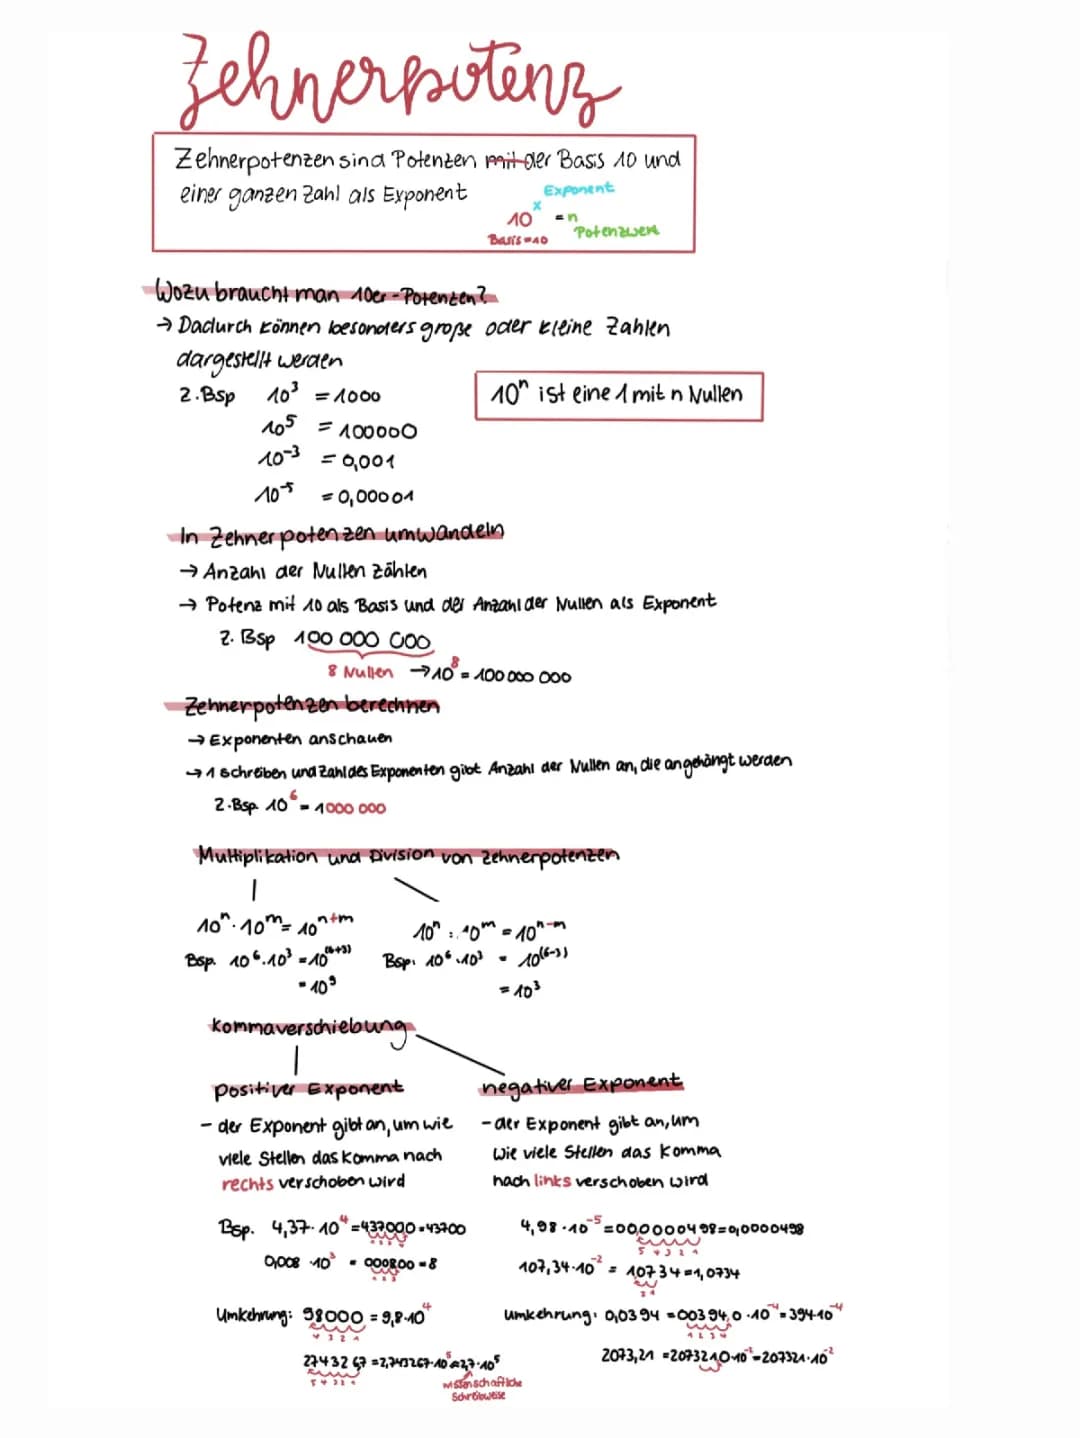 Zehnerpotenz
Zehnerpotenzen sind Potenzen mit der Basis 10 und
einer ganzen Zahl als Exponent
Exponent
10ˣ = n
Basis=10
Potenzwert
Wozu braucht man 10er-Potenzen?
→ Dadurch können besonders große oder kleine Zahlen
dargestellt werden
z.Bsp 10³ = 1000
10ⁿ ist eine 1 mit n Nullen
10⁵ = 100000
10⁻³ = 0,001
10⁻⁵ = 0,00001
In Zehnerpotenzen umwandeln
→ Anzahl der Nullen zählen
→ Potenz mit 10 als Basis und der Anzahl der Nullen als Exponent
z. Bsp 100 000 000
8 Nullen → 10⁸ = 100 000 000
Zehnerpotenzen berechnen
→ Exponenten anschauen
→ 1 schreiben und Zahl des Exponenten gibt Anzahl der Nullen an, die angehängt werden
z.Bsp. 10⁶ = 1000 000
Multiplikation und Division von Zehnerpotenzen
10ⁿ · 10ᵐ = 10ⁿ⁺ᵐ
Bsp. 10⁶ · 10³ = 10⁽⁶⁺³⁾
= 10⁹
10ⁿ : 10ᵐ = 10ⁿ⁻ᵐ
Bsp: 10⁶ · 10³ = 10⁽⁶⁻³⁾
= 10³
Kommaverschiebung
positiver Exponent
- der Exponent gibt an, um wie
viele Stellen das Komma nach
rechts verschoben wird
Bsp. 4,37 · 10⁴ = 437000 = 43700
0,008 · 10³ = 000800 = 8
Umkehrung: 98000 = 9,8 · 10⁴
4 3 2 1
2743267 = 2,743267 · 10⁵ ≈ 2,7 · 10⁵
5 4 3 2 1
wissenschaftliche
Schreibweise
negativer Exponent
- der Exponent gibt an, um
wie viele Stellen das Komma
nach links verschoben wird
4,98 · 10⁻⁵ = 00,0000498 = 0,0000498
5 4 3 2 1
107,34 · 10⁻² = 10734 = 1,0734
2 1
Umkehrung: 0,0394 = 00394,0 · 10⁻⁴ = 394 · 10⁻⁴
1 2 3 4
2073,21 = 207321,0 · 10⁻² = 207321 · 10⁻²